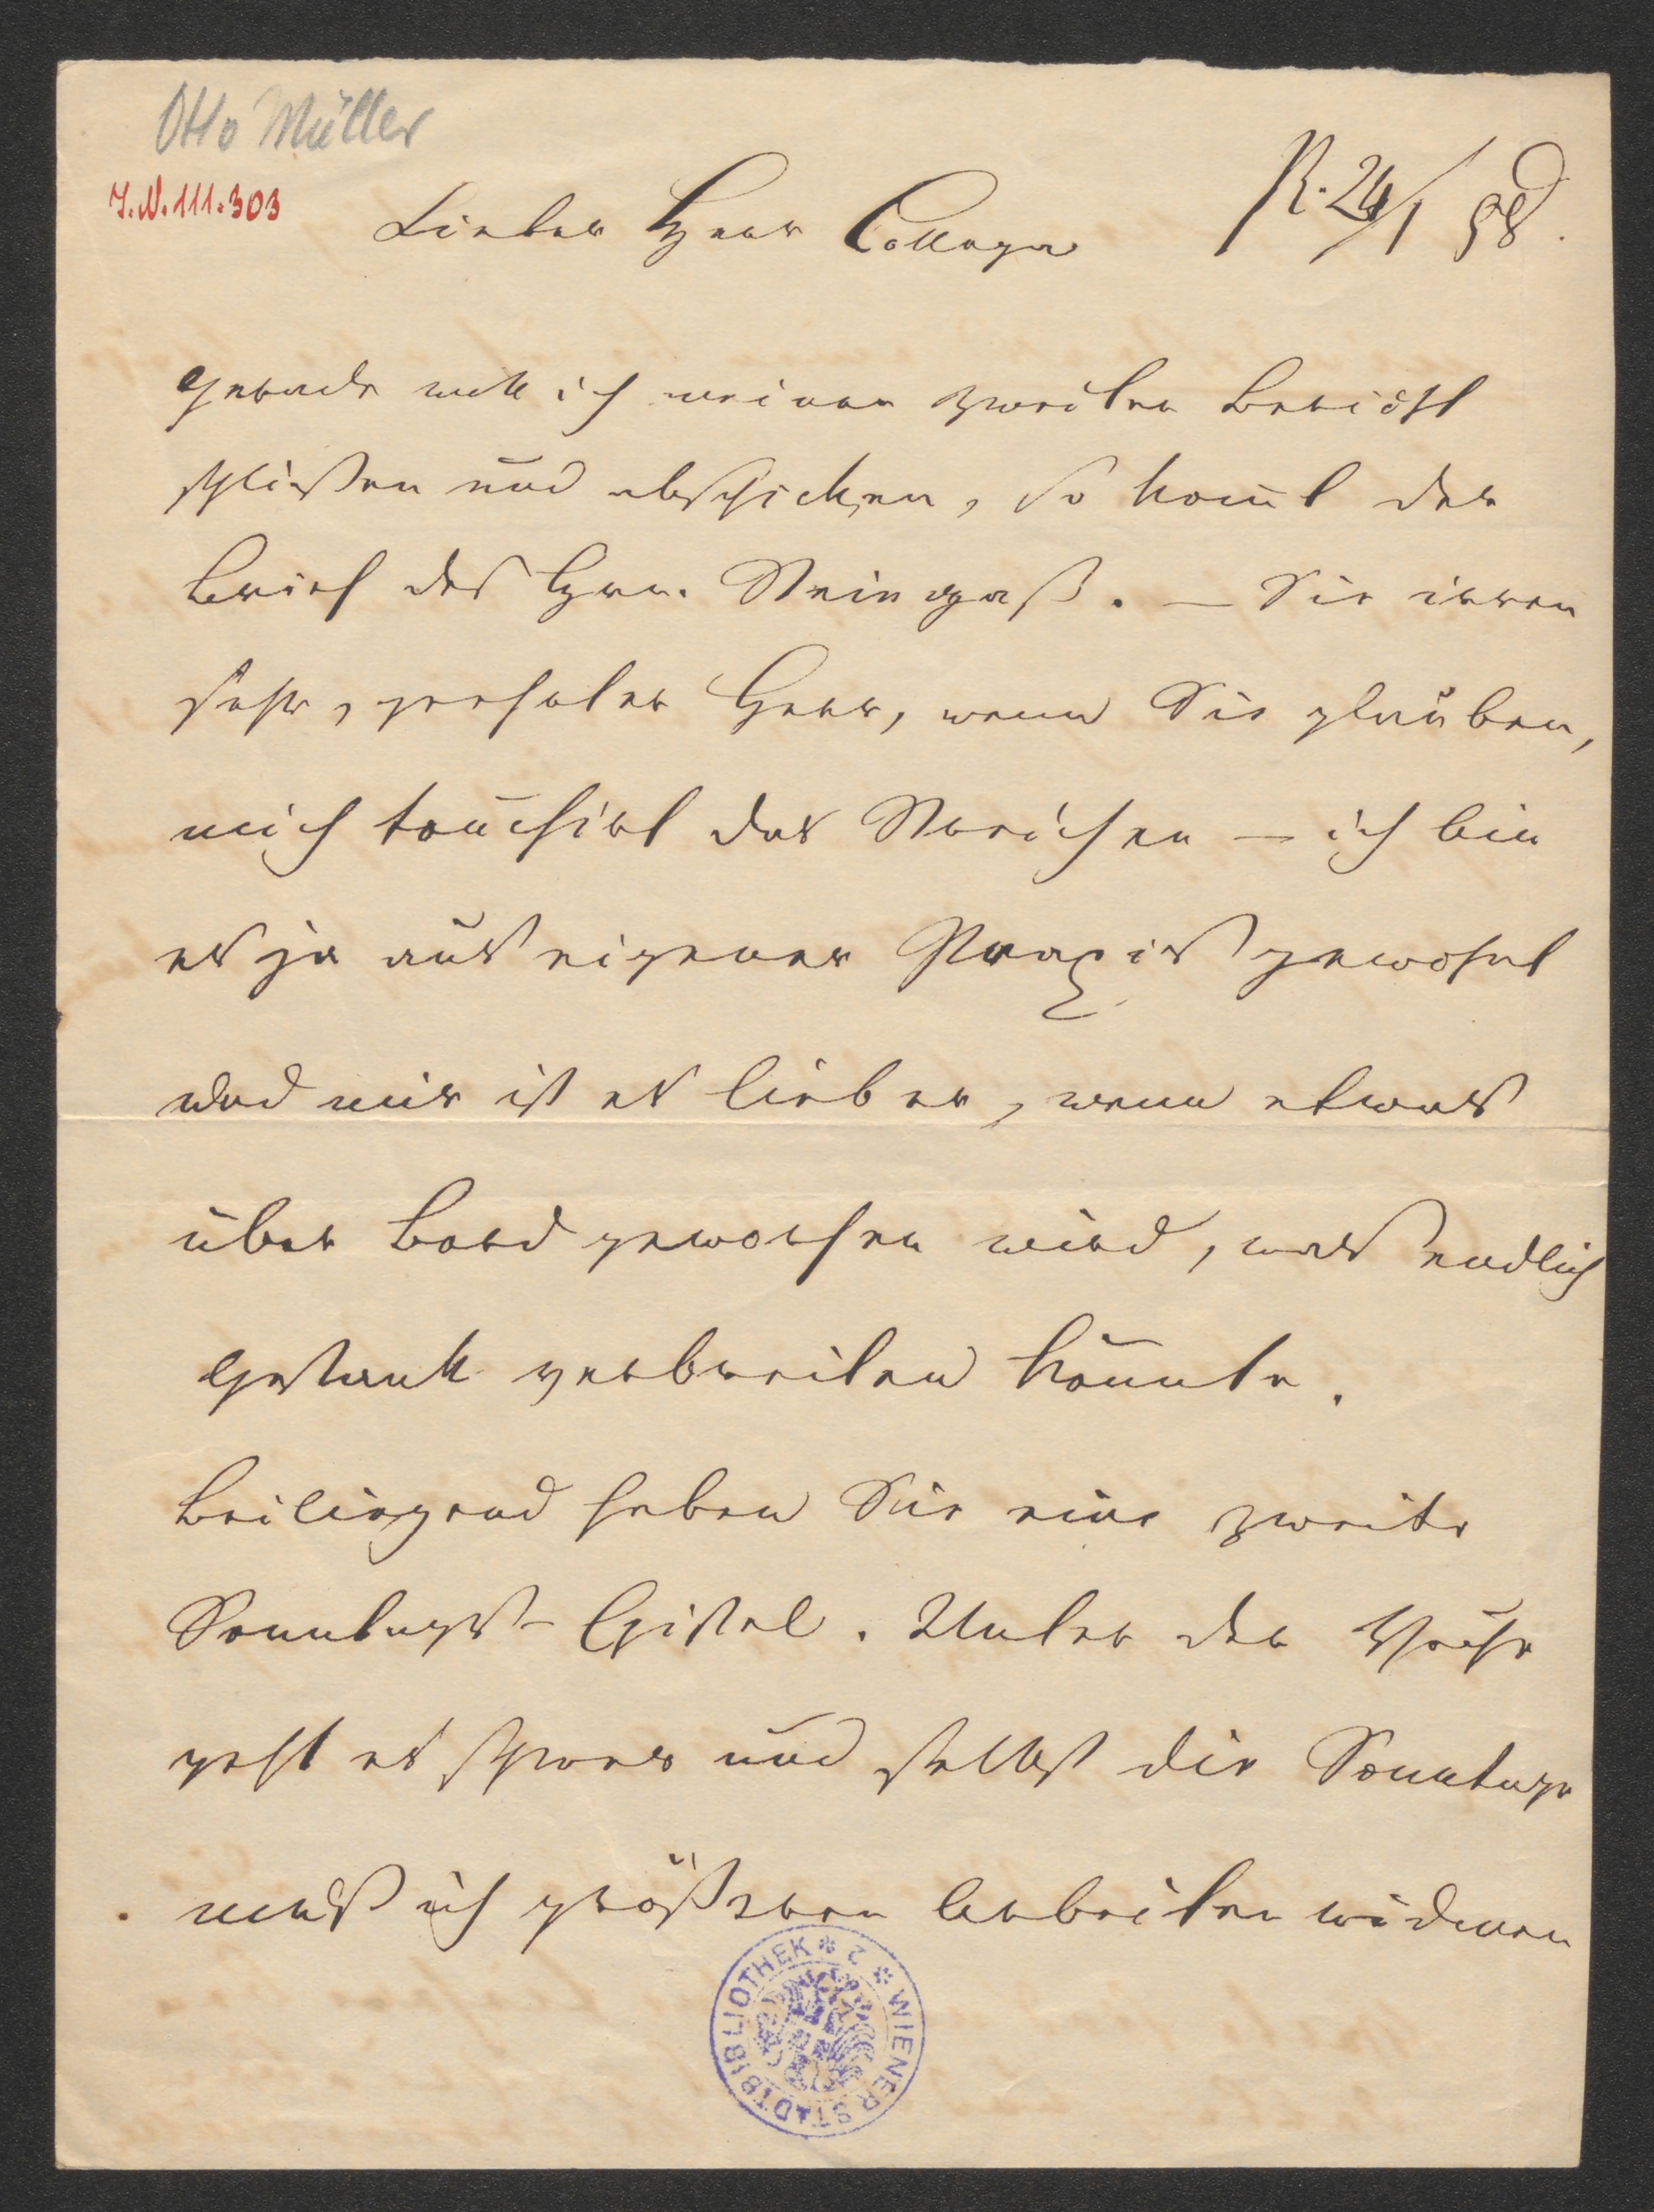 Otto Müller
I.N. 111.303
R. 24/1 98.
Lieber Herr College
Gerade will ich meinen zweiten Bericht
schließen und abschicken, so kom̄t der
Brief des Hrn. Steingaß. – Sie irren
sehr, geehrter Herr, wenn Sie glauben,
mich touchirt das Streichen – ich bin
es ja aus eigener Praxis gewohnt
und mir ist es lieber, wenn etwas
über Bord geworfen wird, was endlich
Gestank verbreiten könnte.
Beiliegend haben Sie eine zweite
Sonntags-Epistel. Unter der Woche
geht es schwer und selbst die Sonntage
muß ich größeren Arbeiten widmen
WIENER STADTBIBLIOTHEK